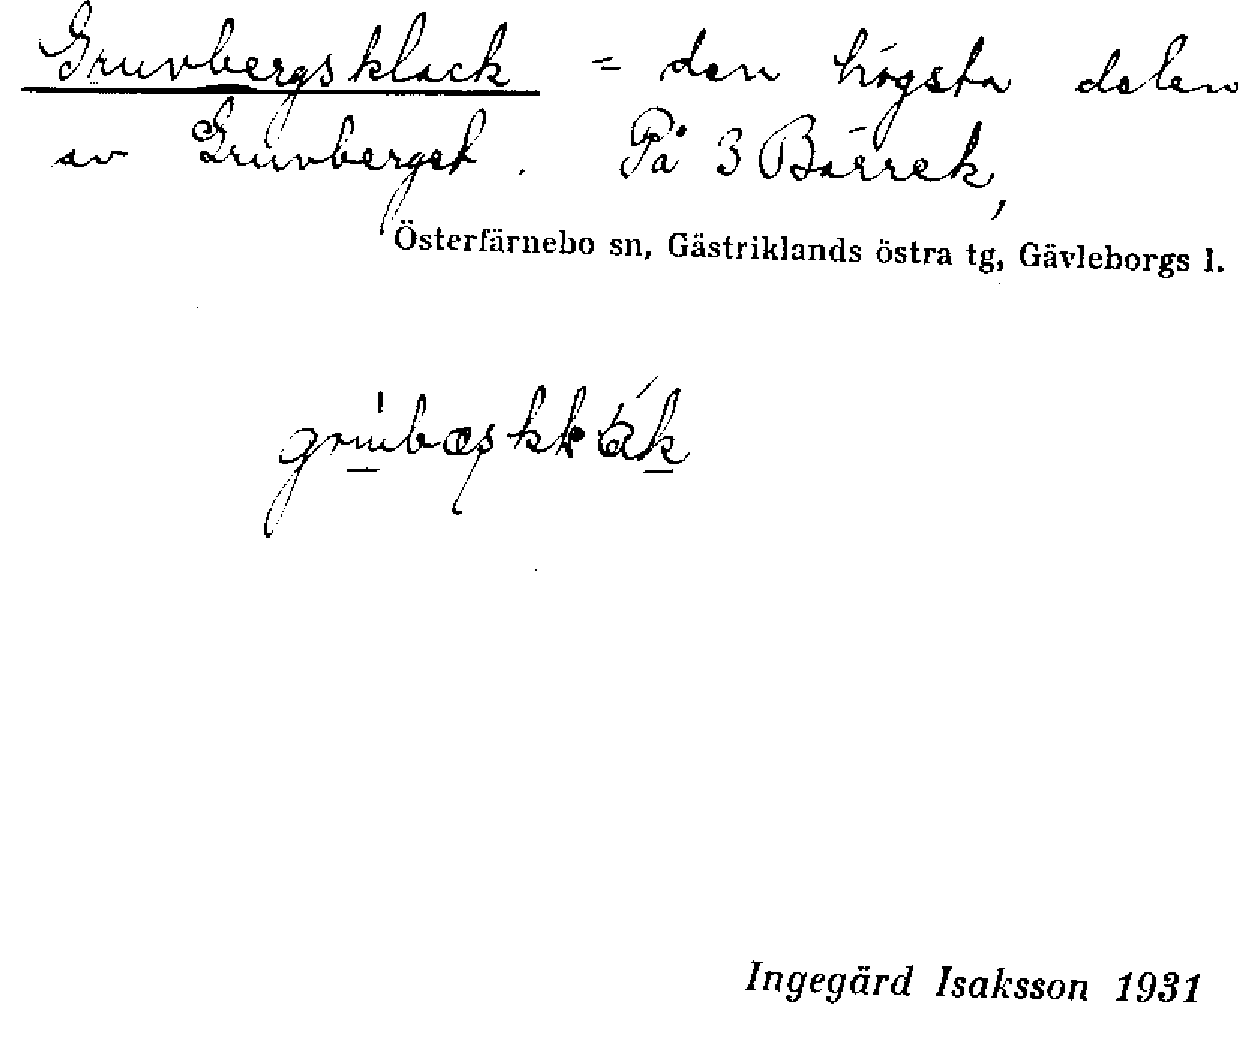 Gruvbergsklack = den högsta delen
av Gruvberget. På 3 Bärrek,
Österfärnebo sn, Gästriklands östra tg, Gävleborgs l.
Ingegärd Isaksson 1931